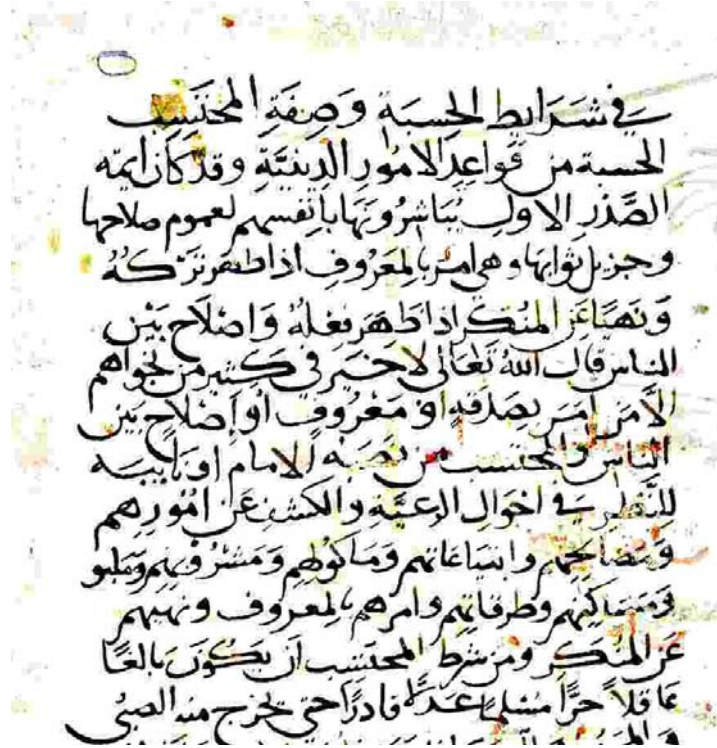 في شرايط الحسبة وصفة المحتسب
الحسبة من قواعد الامور الدينية وقد كان ايمه
الصدر الاول يباشرونها بانفسهم لعموم صلاحها
وجزيل ثوابها وهي امر بالمعروف اذا ظهر تركه
ونهيا عن المنكر اذا ظهر فعله واصلاح بين
الناس قال الله تعالى لا خير في كثير من نجواهم
الا من امر بصدقه او معروف او اصلاح بين
الناس والمحتسب من نصبه الامام او نايبه
للنظر في احوال الرعية والكشف عن امورهم
ومصالحهم وابتياعاتهم وماكولهم ومشروبهم وملبو
ومساكنهم وطرقاتهم وامرهم بالمعروف ونهيهم
عن المنكر ومن شرط المحتسب ان يكون بالغا
عاقلا حرا مسلما عدلا قادرا حتى يخرج منه الصبي